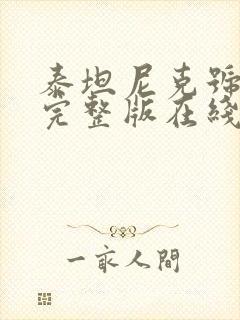 泰坦尼克號
完整版在綫
一宷人間